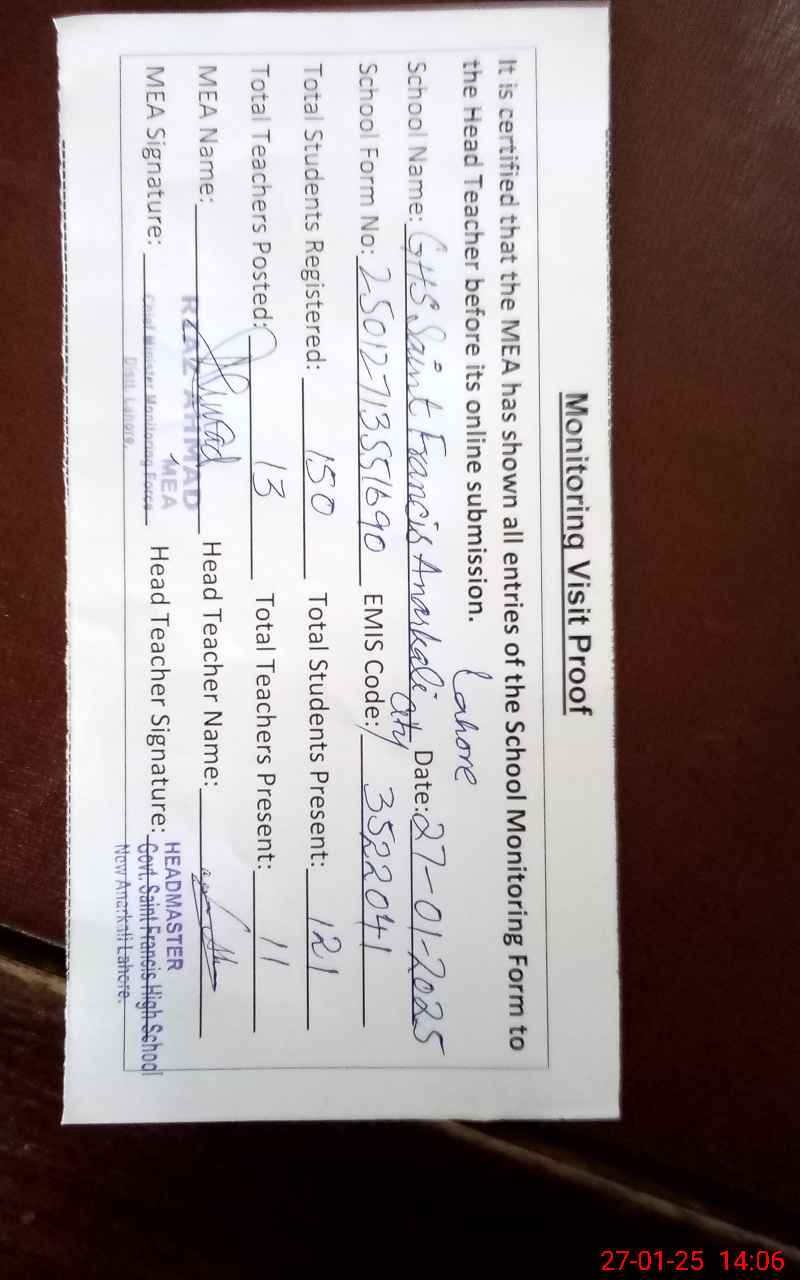 Monitoring Visit Proof
It is certified that the MEA has shown all entries of the School Monitoring Form to
the Head Teacher before its online submission.
Lahore
School Name: GHS Saint Francis Anarkali City Date: 27-01-2025
School Form No: 25012713551690 EMIS Code: 3522041
Total Students Registered: 150 Total Students Present: 121
Total Teachers Posted: 13 Total Teachers Present: 11
MEA Name: Head Teacher Name:
MEA Signature: Head Teacher Signature:
AHMAD
MEA
Chief Minister Monitoring Force
Distt. Lahore.
HEADMASTER
Govt. Saint Francis High School
New Anarkali Lahore.
27-01-25 14:06